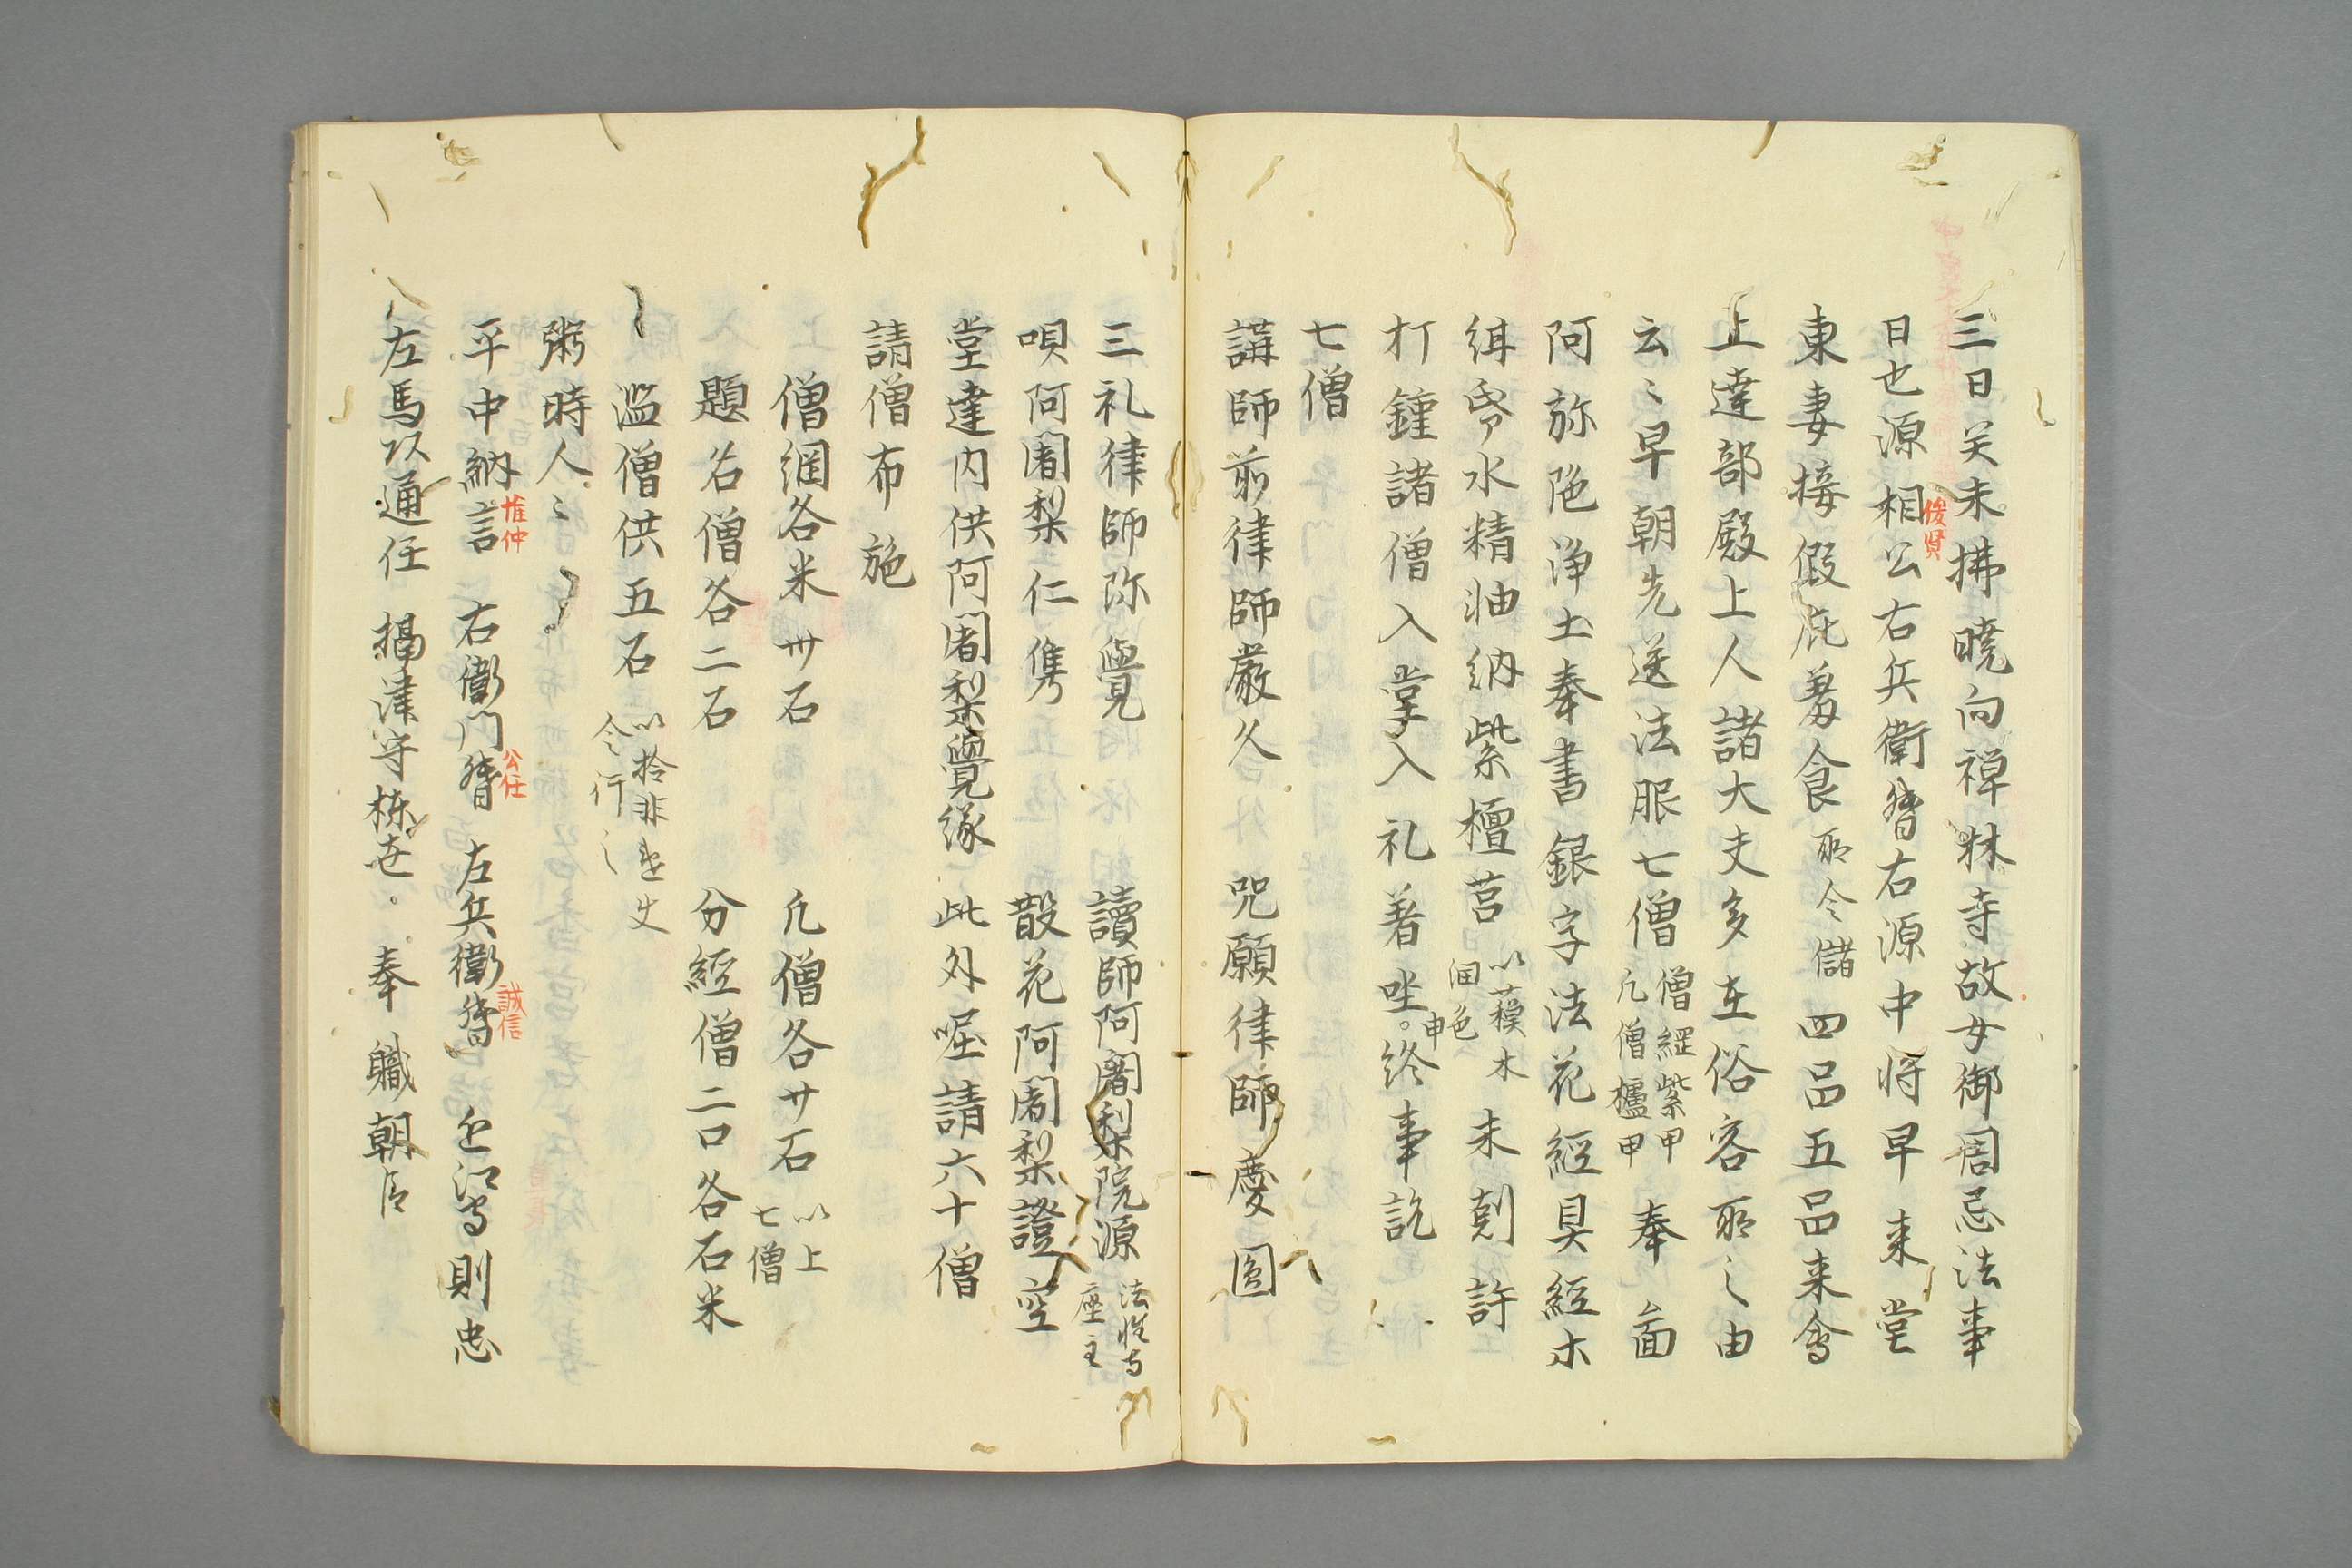 三日关未拂曉向禅林寺故女御周忌法事
日也源相公俊賢右兵衛督右源中将早来堂
東妻接假庇羞食所令儲四品五品来会
上達部殿上人諸大夫多在俗客所之由
云々早朝先送法服七僧僧綱紫甲凡僧櫨甲奉 面
阿弥陁浄土奉書銀字法花經具經木
水精軸納紫檀莒以蘓木洄色未剋許
打鍾諸僧入堂入礼著坐。終事訖
七僧
講師前律師厳久 咒願律師慶圓
三礼律師弥覺 讀師阿闍梨院源法性寺座主
唄阿闍梨仁雋 散花阿闍梨證空
堂達内供阿闍梨覺縁 此外啒請六十僧
請僧布施
僧綱各米卅石 凡僧各廿石以上七僧
題名僧各二石 分經僧二口各石米
濫僧供五石以拾非違 令行之
粥時人々
平中納言惟仲 右衛門督公任 左兵衛督誠信 近江守則忠
左馬頭通任 摂津守棟世。 奉職朝臣